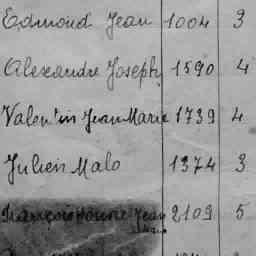 Edmond Jean 1004 3
Alexandre Joseph 1590 4
Valentin Jean Marie 1739 4
Julien Malo 1374 3
Jean 2109 5